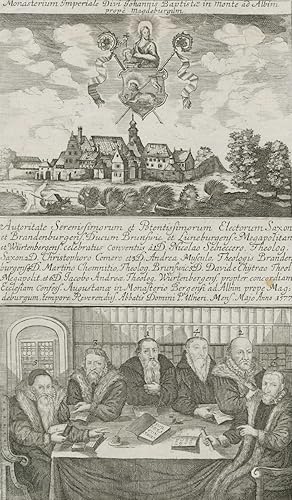 Monasterium Imperiale Divi Johannis Baptistæ in Monte ad Albim
prope Magdeburgum
Autoritate Serenissimorum et Potentissimorum Electorum Saxon
et Brandenburgens. Ducum Brunsvic. et Luneburgens. Megapolitan
et Würtenbergens. celebratus Conventus à D. Nicolao Selnecero, Theolog.
Saxon. à D. Christophoro Cornero et D. Andrea Musculo, Theologis Branden
burgens. à D. Martino Chemnitio, Theolog. Brunsvic. à D. Davide Chytræo Theol.
Megapolit. et D. Jacobo Andreæ, Theolog. Würtenbergens. propter concordiam
Ecclesiar. Confess. Augustanæ in Monasterio Bergensi ad Albim prope Mag:
deburgum tempore Reverendiss. Abbatis Domini P. Ulneri, Mens. Majo Anno 1577